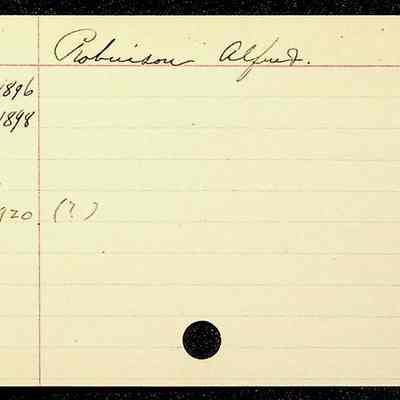 Robinson Alfred.
1896
1898
920 (?)